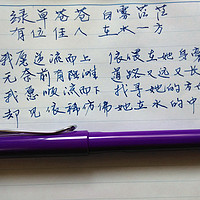 绿草苍苍 白雾茫茫
有位佳人 在水一方
我愿逆流而上 依偎在她身旁
无奈前有险滩 道路又远又长
我愿顺流而下 找寻她的方向
却见依稀仿佛 她在水的中